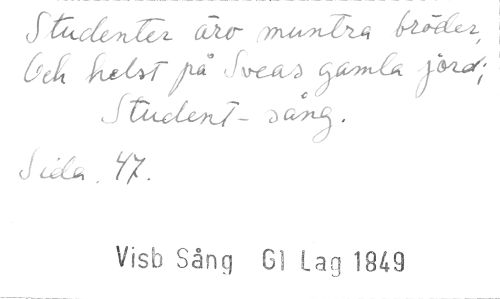 Studenter äro muntra bröder,
Och helst på Sveas gamla jord;
Student-sång.
Sida. 47.
Visb Sång Gl Lag 1849